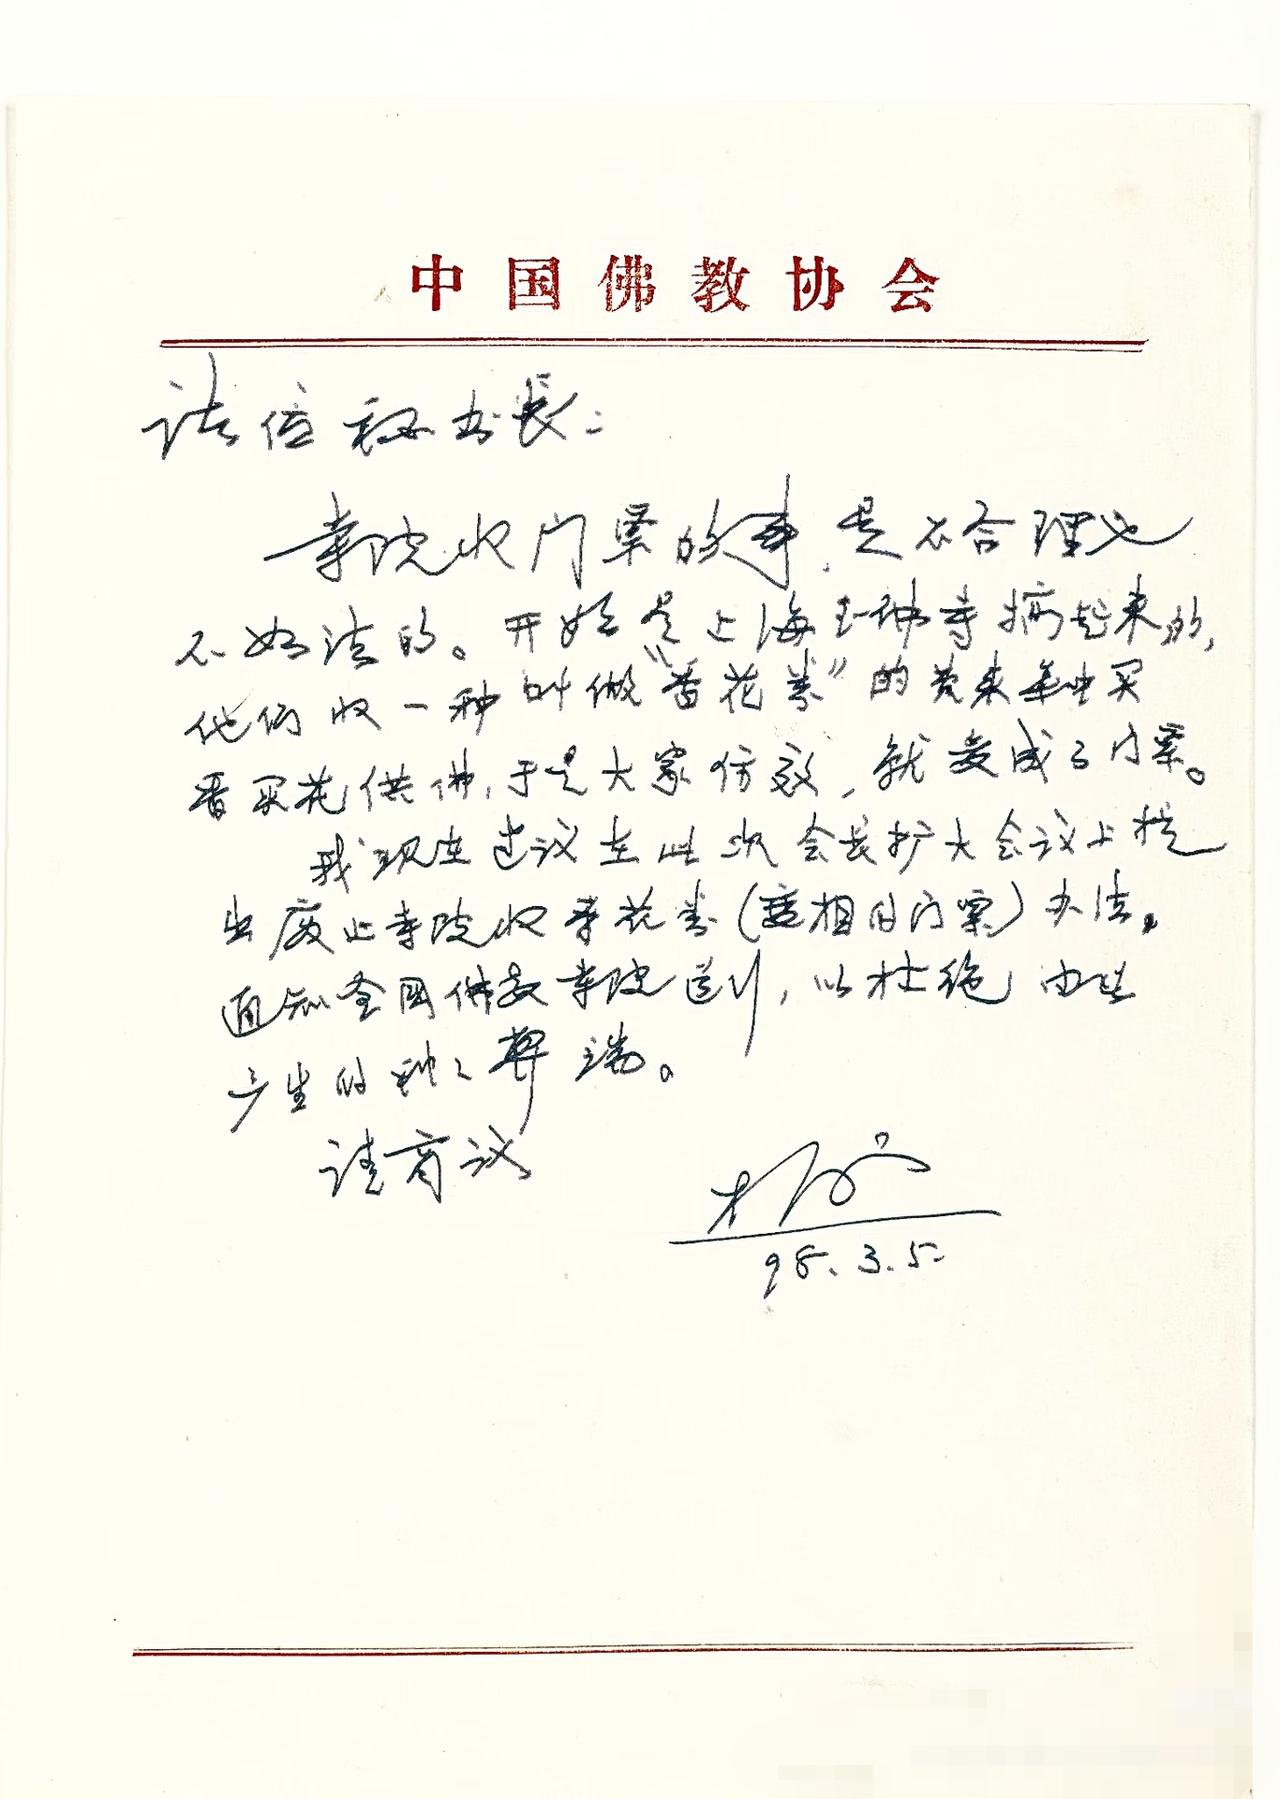 中国佛教协会
诸位秘书长：
寺院收门票的事，是不合理也
不如法的。开始是上海玉佛寺搞起来的，
他们收一种叫做“香花券”的费来买
香买花供佛，于是大家仿效，就变成了门票。
我现在建议在此次会长扩大会议上提
出废止寺院收香花券（变相的门票）办法。
通知全国佛教寺院遵行，以杜绝由此
产生的种种弊端。
请商议
98.3.5